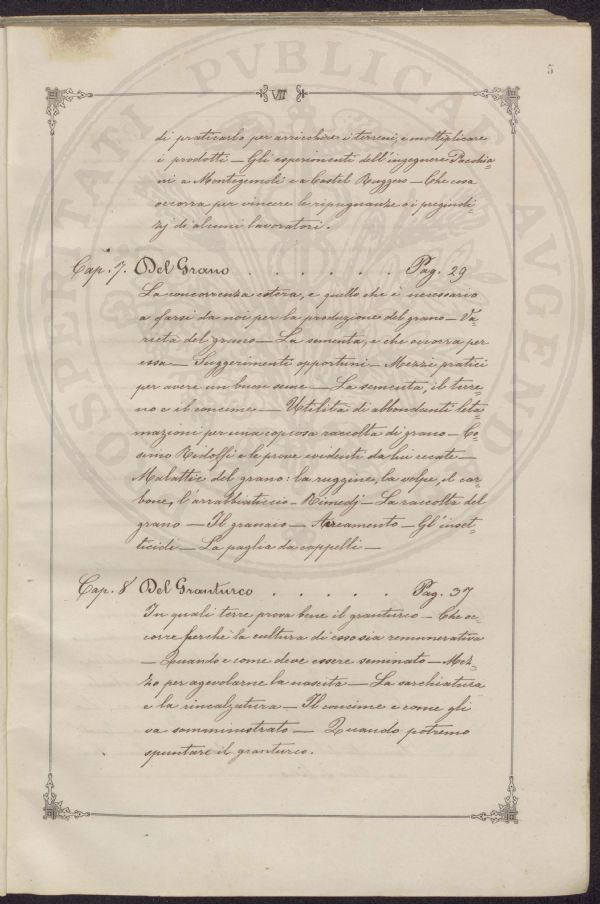 5
VII
di praticarlo per arricchire i terreni, e moltiplicare
i prodotti — Gli esperimenti dell'ingegnere Pacchia=
ni a Montegemoli e a Castel Ruggero — Che cosa
occorra per vincere le ripugnanze o i pregiudi=
zj di alcuni lavoratori.
Cap. 7. Del Grano . . . . . . Pag. 29
La concorrenza estera, e quello che è necessario
a farsi da noi per la produzione del grano — Va=
rietà del grano — La sementa, e che occorra per
essa — Suggerimenti opportuni — Mezzi pratici
per avere un buon seme — La sementa, il terre=
no e il concime — Utilità di abbondanti leta=
mazioni per una copiosa raccolta di grano — Co=
simo Ridolfi e le prove evidenti da lui recate —
Malattie del grano: la ruggine, la volpe, il car=
bone, l'arrabbiaticcio — Rimedj — La raccolta del
grano — Il granaio — Arieamento — Gl'inset=
ticidi — La paglia da cappelli —
Cap. 8 Del Granturco . . . . . Pag. 37
In quali terre prova bene il granturco — Che oc=
corre perchè la cultura di esso sia remunerativa
— Quando e come deve essere seminato — Mez=
zo per agevolarne la nascita — La sarchiatura
e la rincalzatura — Il concime e come gli
va somministrato — Quando potremo
spuntare il granturco.
PROSPERITATI PVBLICAE AVGENDAE